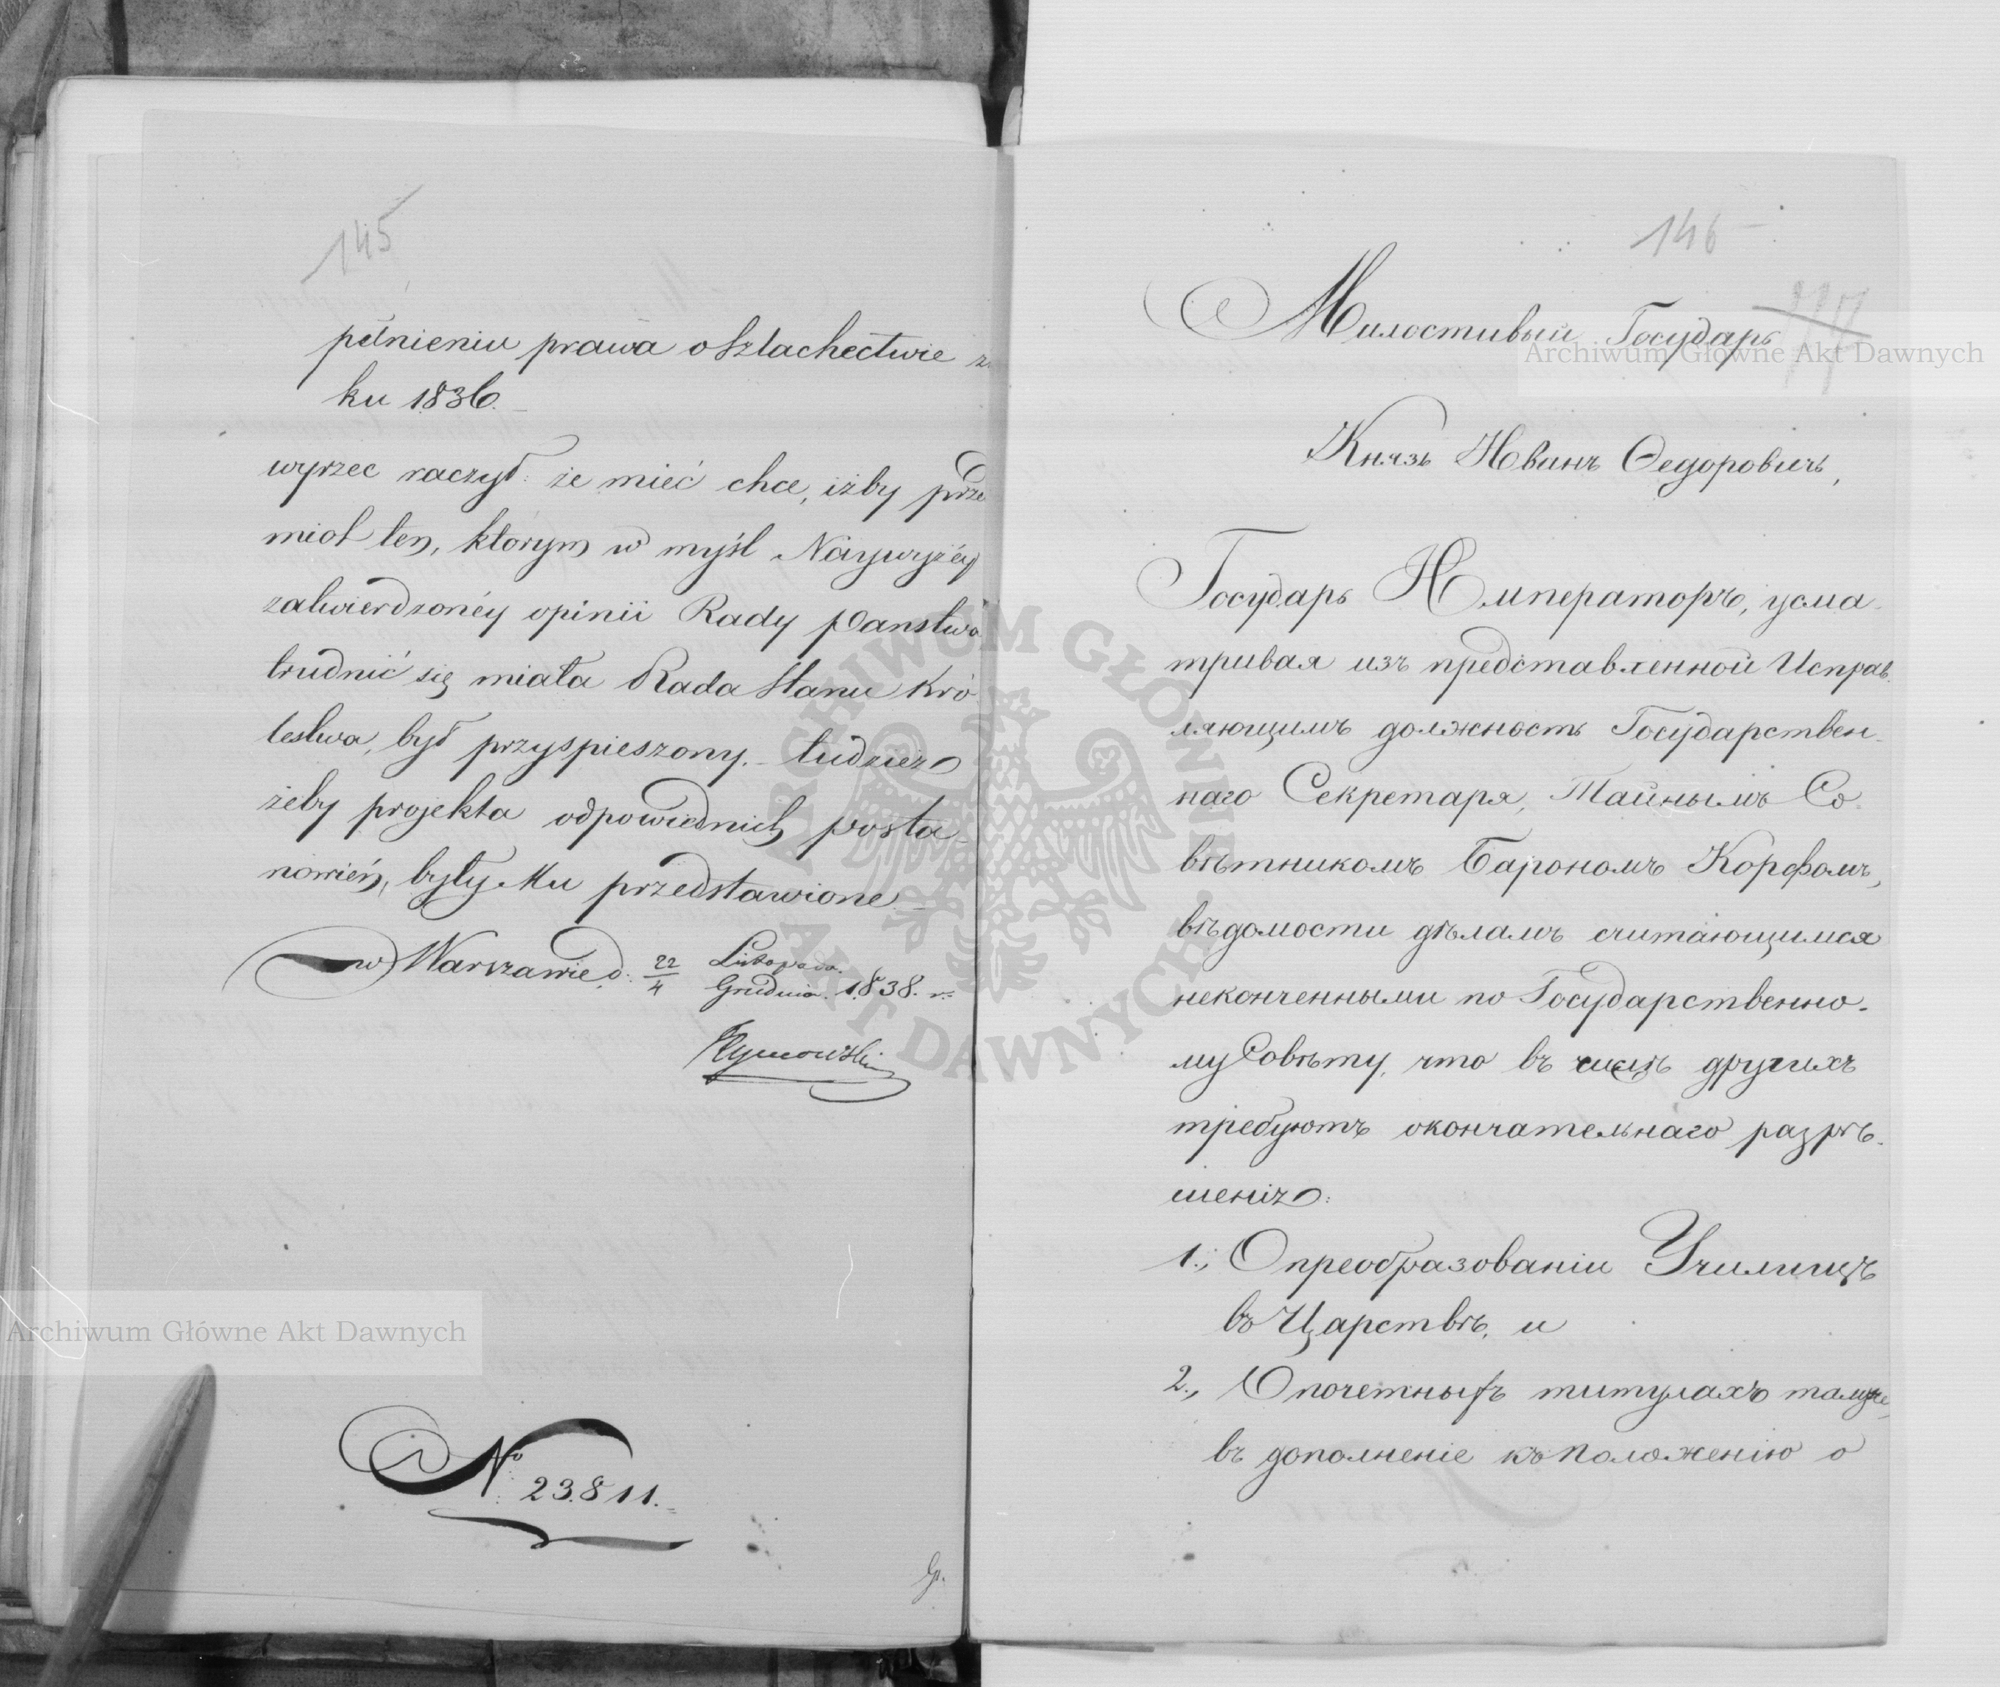 145
pełnieniu prawa o Szlachectwie z
ku 1836.
wyrzec raczył: że mieć chce, iżby prze
miot ten, którym w myśl Naywyżéy
zatwierdzonéy opinii Rady Państwa
trudnić się miała Rada Stanu Kró
lestwa, był przyspieszony. – tudzież
żeby projekta odpowiednich posta
nowień, były Mu przedstawione
w Warszawie d. 22/4 Listopada/Grudnia 1838. r.
Tymowski
No 23.811.
G.
146
Милостивый Государь
Князь Иванъ Ѳедоровичь,
Государь Императоръ, усма-
тривая изъ представленной Исправ-
ляющимъ должность Государствен-
наго Секретаря, Тайнымъ Со-
вѣтникомъ Барономъ Корфомъ,
вѣдомости дѣламъ считающимся
неконченными по Государственно-
му Совѣту, что въ числѣ другихъ
требуютъ окончательнаго разрѣ-
шенія:
1., О преобразованіи Училищъ
въ Царствѣ, и
2., О почетныхъ титулахъ тамже,
въ дополненіе къ Положенію о
Archiwum Główne Akt Dawnych
Archiwum Główne Akt Dawnych
ARCHIWUM GŁÓWNE AKT DAWNYCH